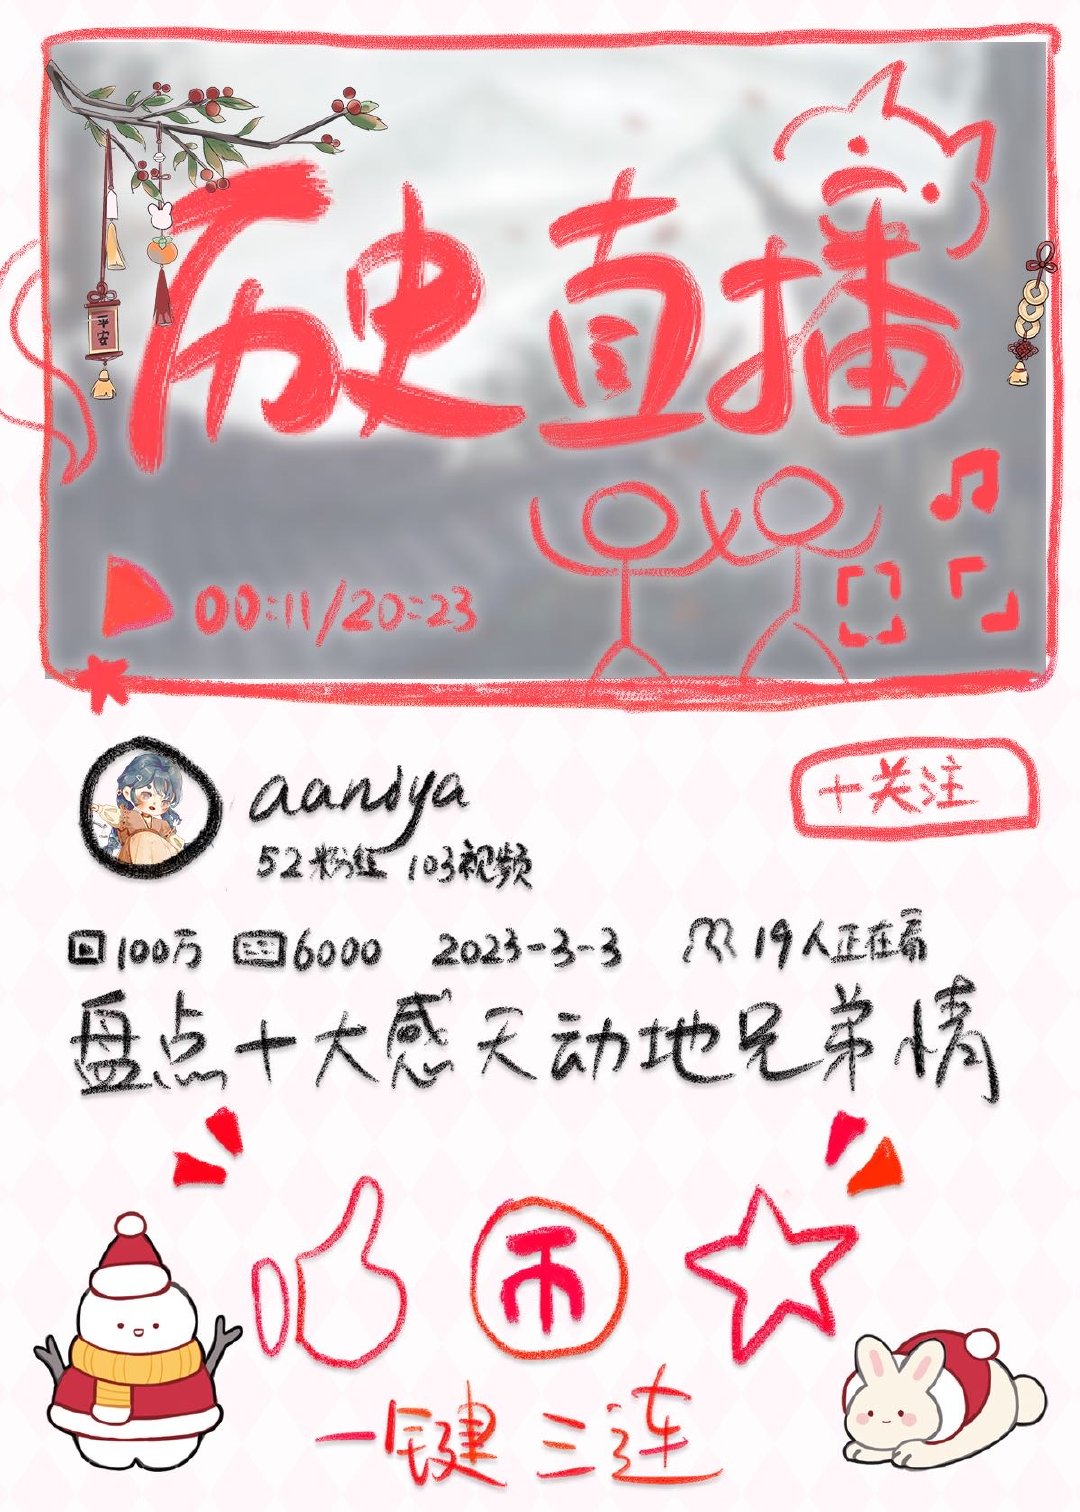 历史直播
平安
00:11/20:23
aaniya
+关注
52粉丝 103视频
100万 6000 2023-3-3 19人正在看
盘点十大感天动地兄弟情
币
一键三连